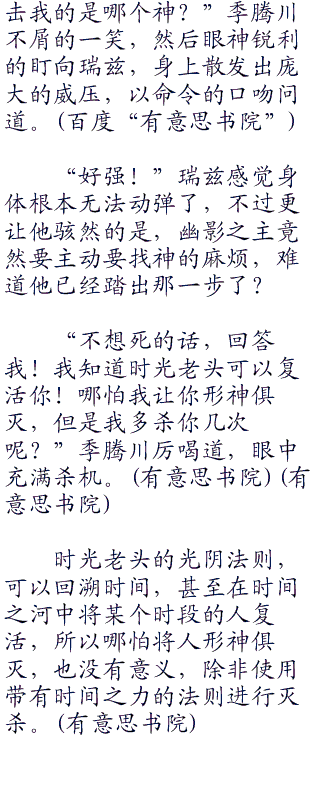 击我的是哪个神？”季腾川
不屑的一笑，然后眼神锐利
的盯向瑞兹，身上散发出庞
大的威压，以命令的口吻问
道。(百度“有意思书院”)
“好强！”瑞兹感觉身
体根本无法动弹了，不过更
让他骇然的是，幽影之主竟
然要主动要找神的麻烦，难
道他已经踏出那一步了？
“不想死的话，回答
我！我知道时光老头可以复
活你！哪怕我让你形神俱
灭，但是我多杀你几次
呢？”季腾川厉喝道，眼中
充满杀机。(有意思书院)(有
意思书院)
时光老头的光阴法则，
可以回溯时间，甚至在时间
之河中将某个时段的人复
活，所以哪怕将人形神俱
灭，也没有意义，除非使用
带有时间之力的法则进行灭
杀。(有意思书院)